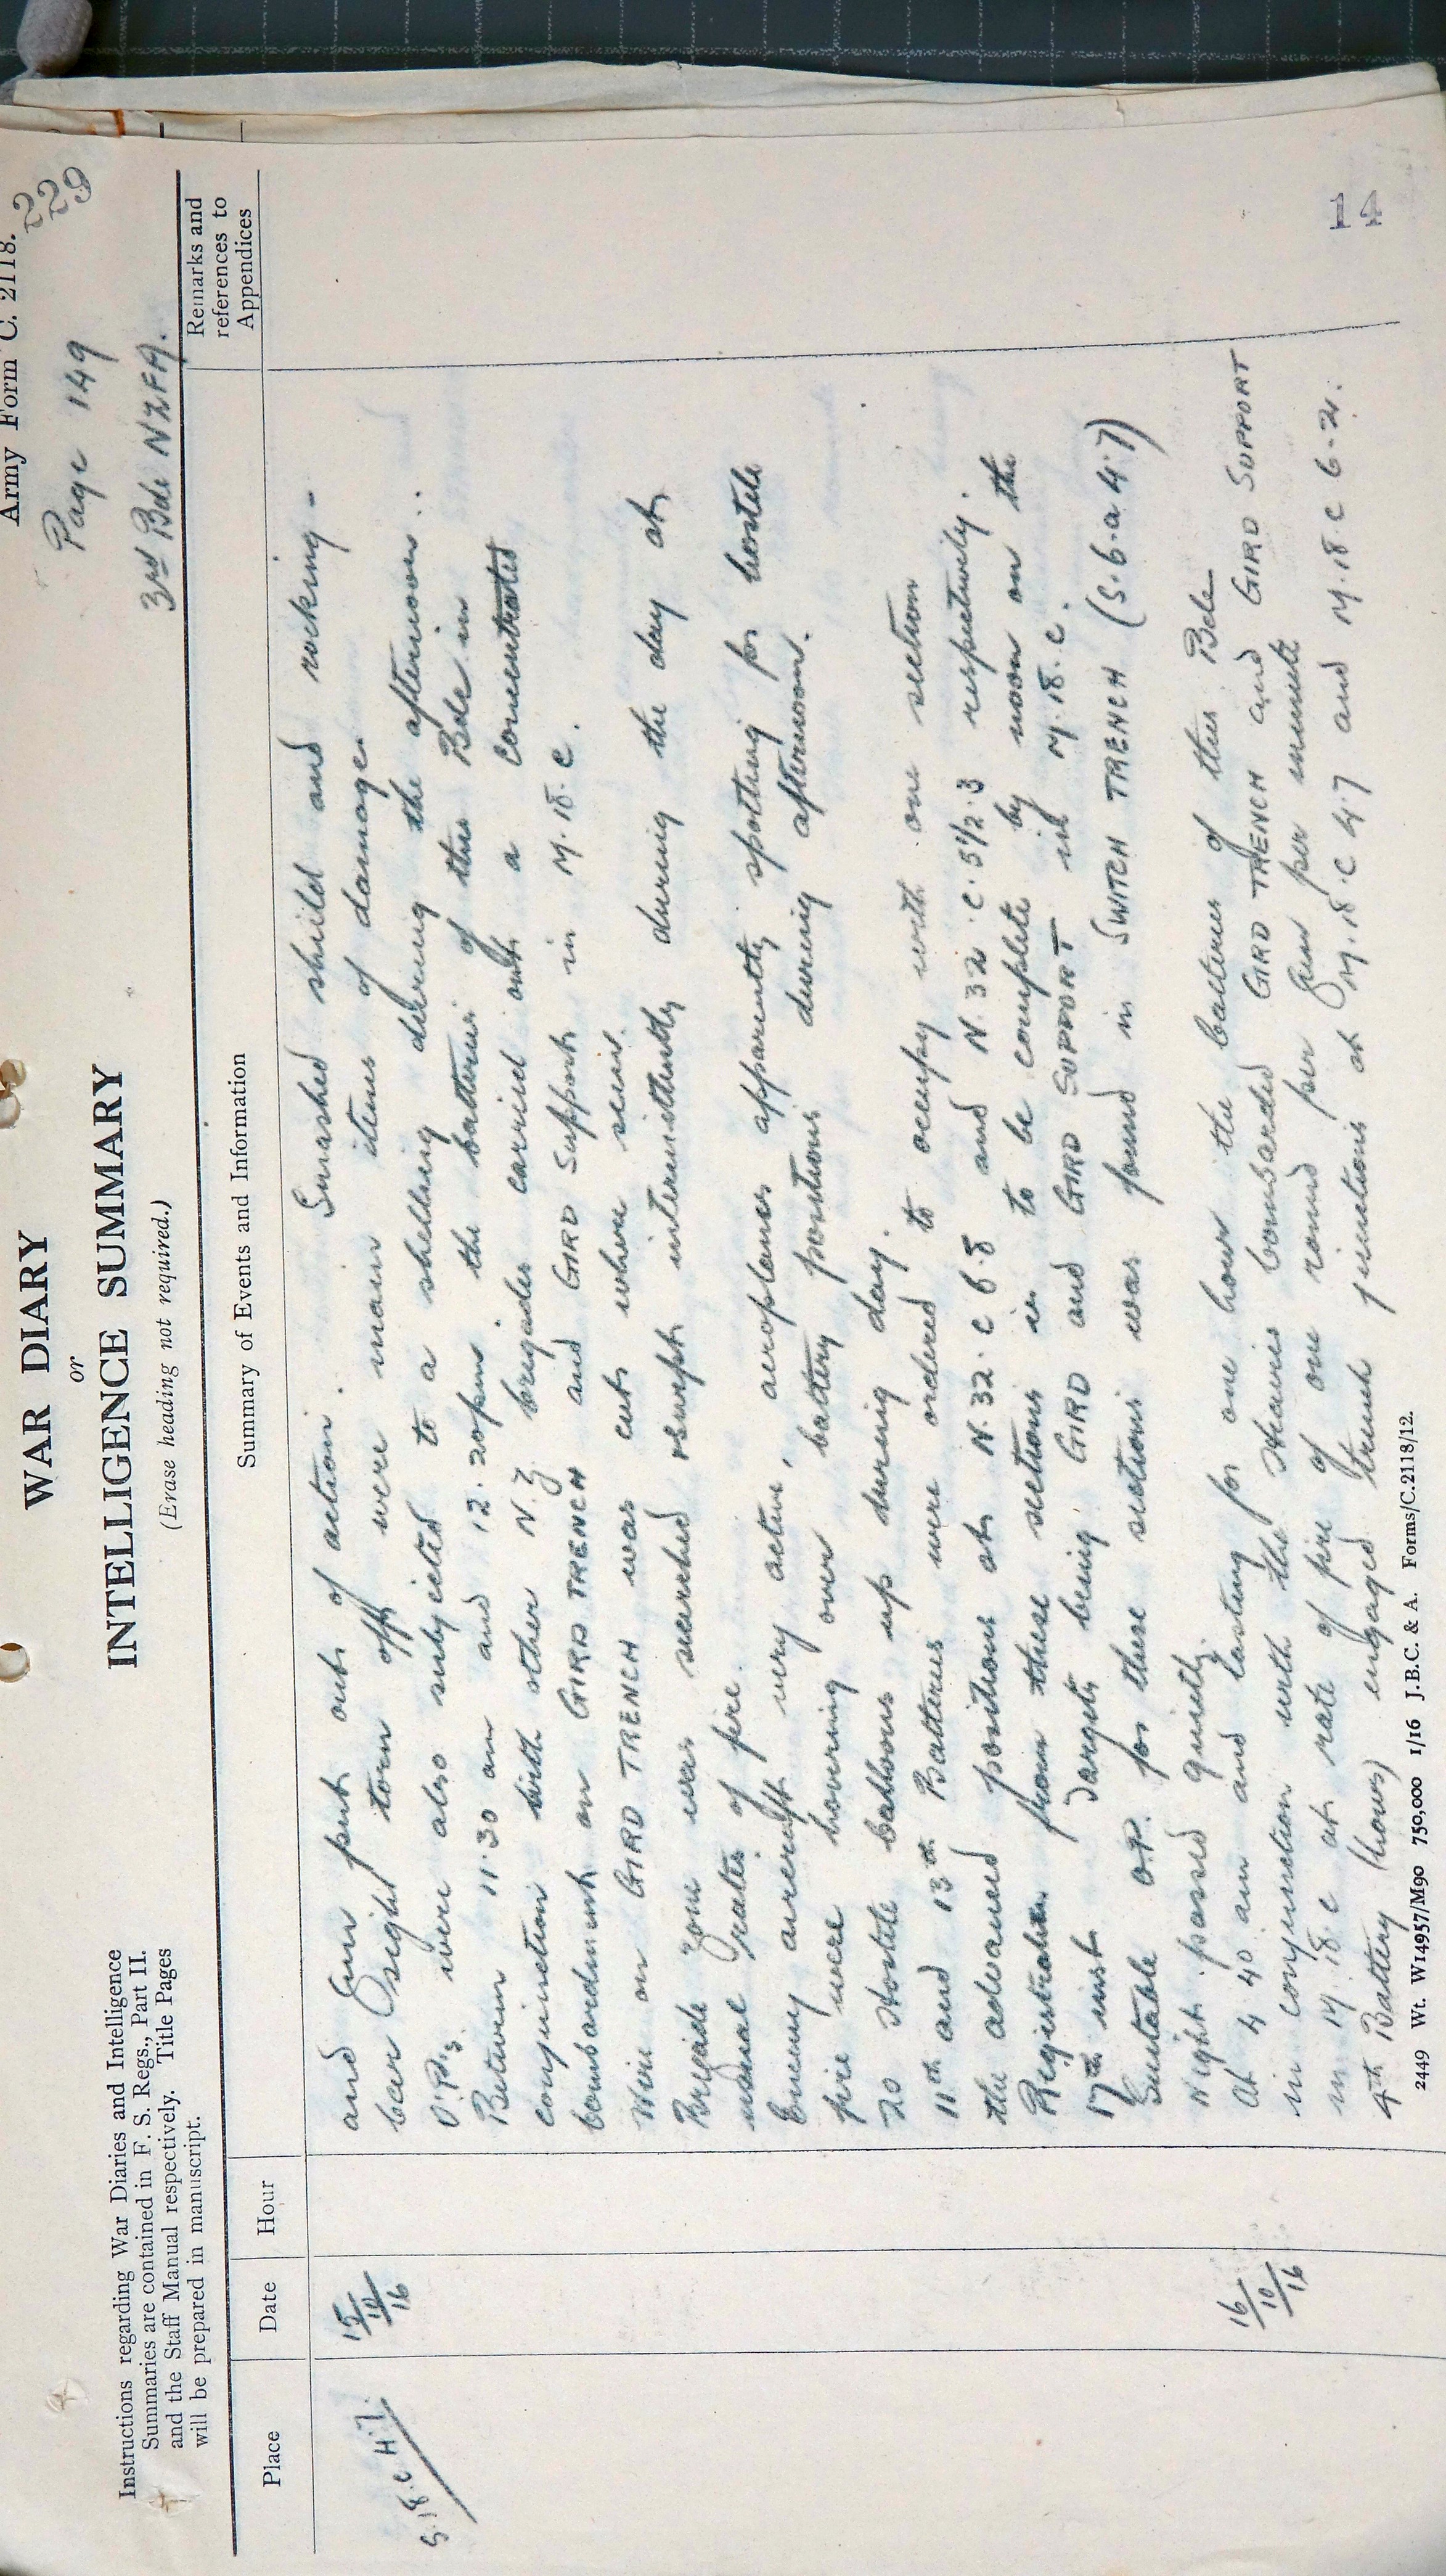 Army Form C. 2118.
229
Page 149
3rd Bde NZFA.
WAR DIARY
or
INTELLIGENCE SUMMARY
(Erase heading not required.)
Instructions regarding War Diaries and Intelligence
Summaries are contained in F. S. Regs., Part II.
and the Staff Manual respectively. Title Pages
will be prepared in manuscript.
Place
Date
Hour
Summary of Events and Information
Remarks and
references to
Appendices
S.18.c 4.7.
15/10/16
and gun put out of action. Smashed shield and rocking-
bar sight torn off were main items of damage.
O.P.s were also subjected to a shelling during the afternoon.
Between 11.30 am and 12.20pm the batteries of this Bde in
conjunction with other N.Z brigades carried out a concentrated
bombardment on GIRD TRENCH and GIRD Support in M.18.c.
Wire on GIRD TRENCH was cut where seen.
Brigade zone was searched + swept intermittently during the day at
normal rates of fire.
Enemy aircraft very active, aeroplanes apparently spotting for hostile
fire were hovering over battery positions during afternoon.
20 Hostile balloons up during day.
11th and 13th Batteries were ordered to occupy with one section
the advanced positions at N.32.c 6.8 and N.32.c.5½.3 respectively.
Registration from these sections is to be complete by noon on the
17th inst targets being GIRD and GIRD SUPPORT in M.18.c.
Suitable O.P. for these sections was found in SWITCH TRENCH (S.6.a.4.7)
16/10/16
Night passed quietly.
At 4 40 am and lasting for one hour the batteries of this Bde
in conjunction with the Heavies bombarded GIRD TRENCH and GIRD SUPPORT
in M.18.c at rate of fire of one round per gun per minute
4th Battery (hows) engaged trench junctions at M.18.c 4.7 and M.18.c 6.2½.
2449 Wt. W14957/M90 750,000 1/16 J.B.C. & A. Forms/C.2118/12.
14